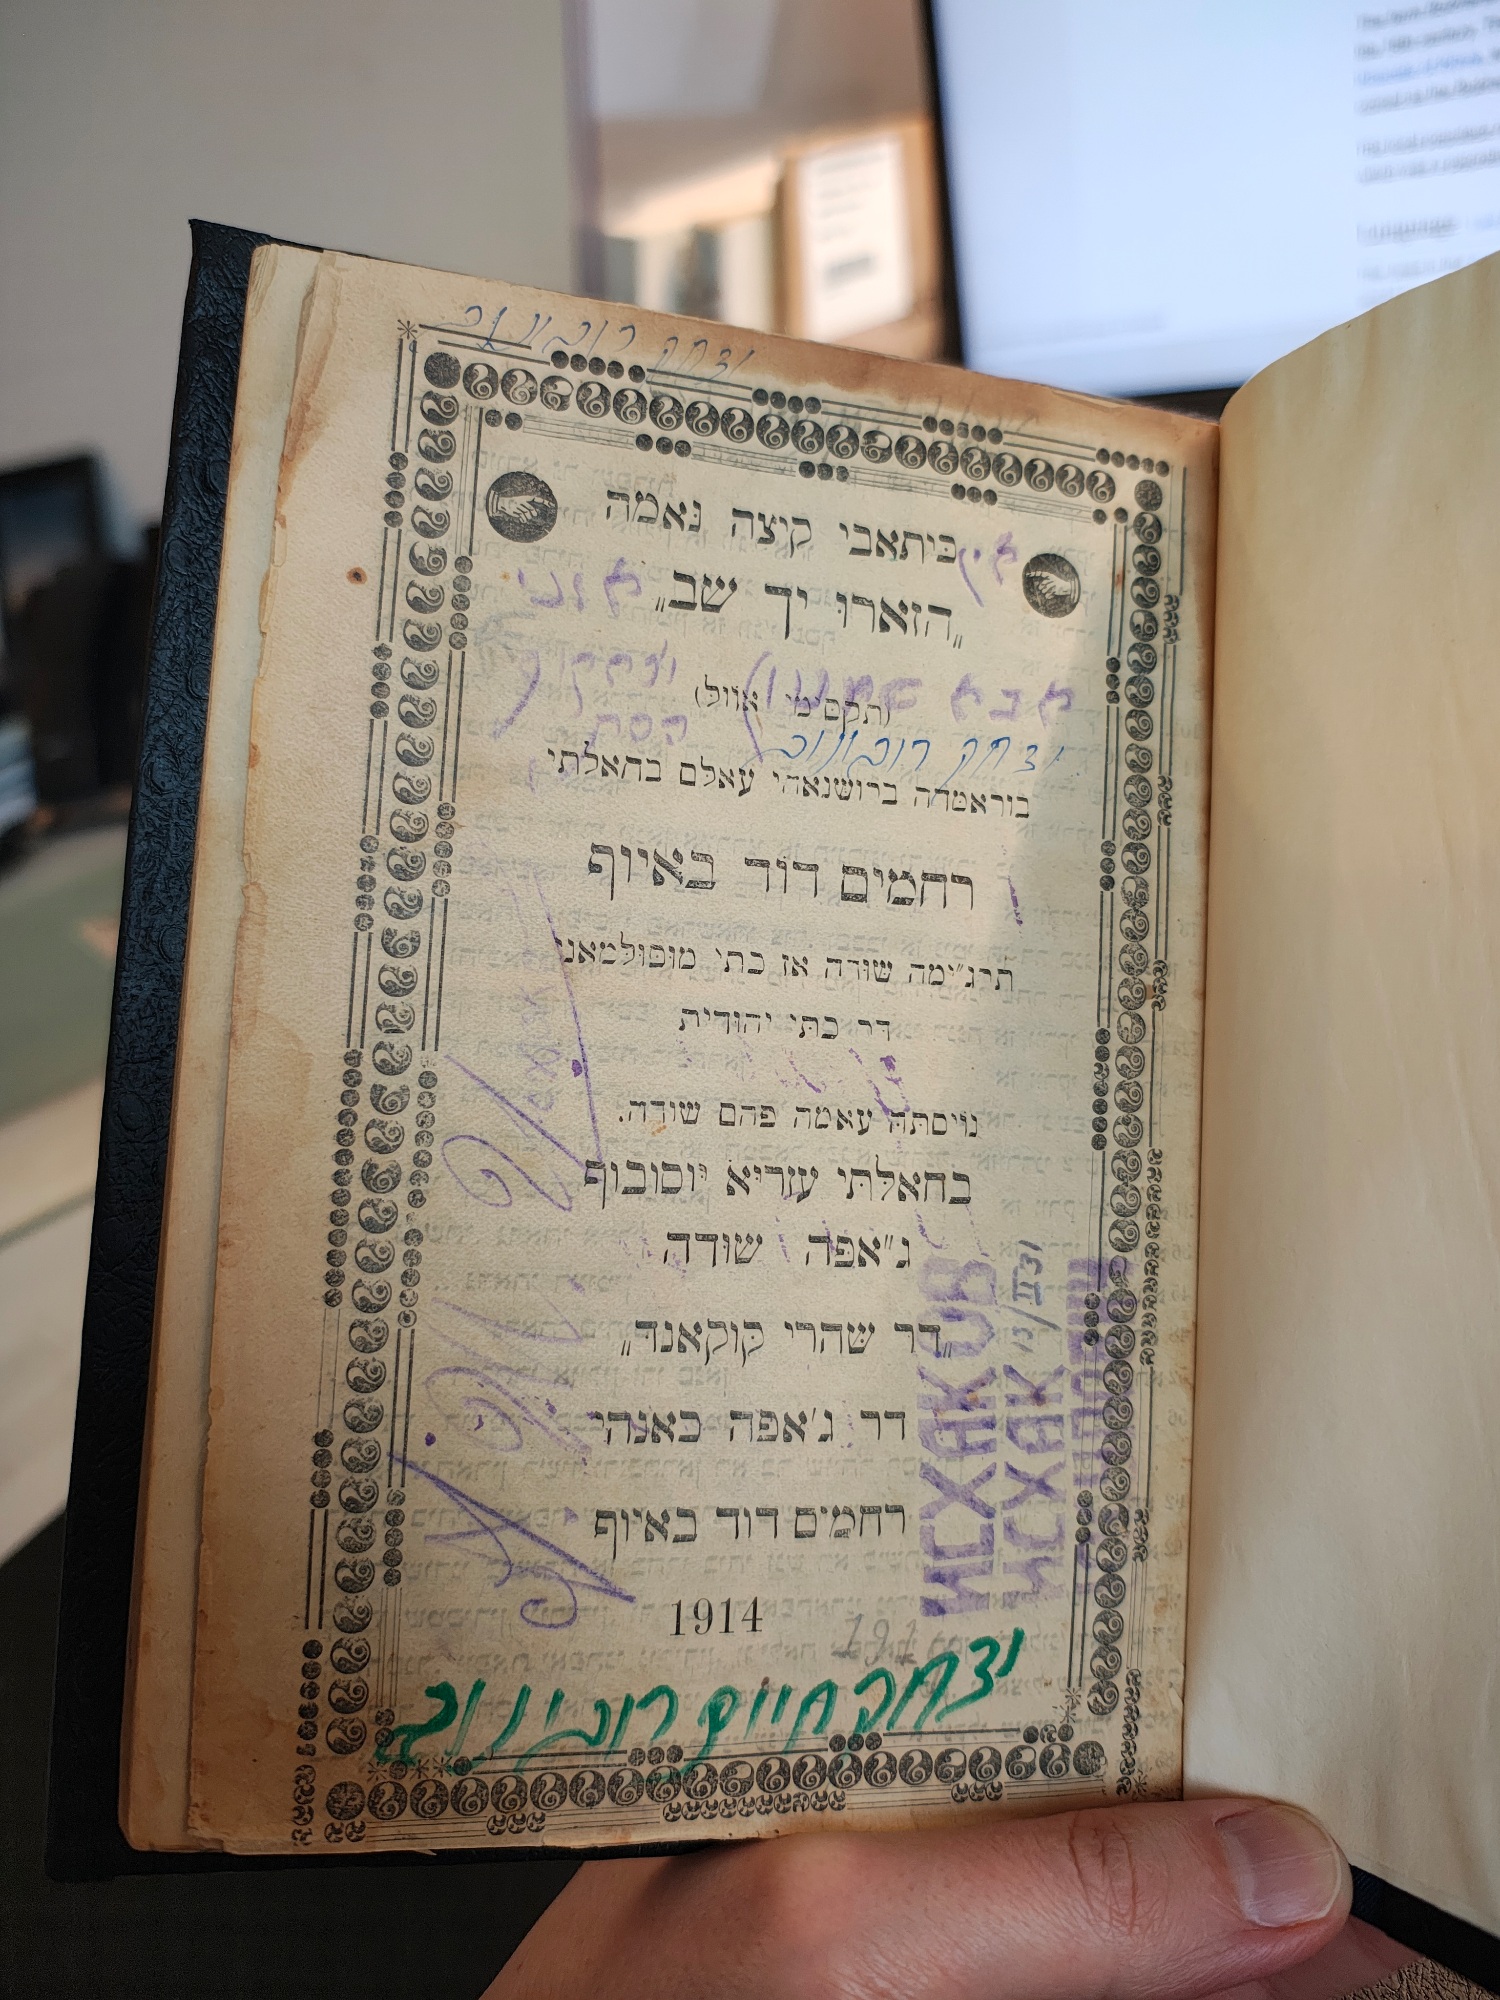 יצחק רובינוב
כיתאבי קיצה נאמה
„הזארו יך שב„
אבא שמעון יצחקוף
(תקסימי אוול)
יצחק רובינוב
בוראמדה ברושנאהי עאלם בחאלתי
רחמים דוד באיוף
תירג״ימה שודה אז כתי מוסולמאני
דר כתי יהודית
נויסתה עאמה פהם שודה.
בחאלתי עזריא יוסובוף
ג״אפה שודה
„דר שהרי קוקאנד„
דר ג׳אפה כאנהי
רחמים דוד באיוף
1914
191
יצחק חיים רובינוב
ИСХАКОВ
ИСХАК